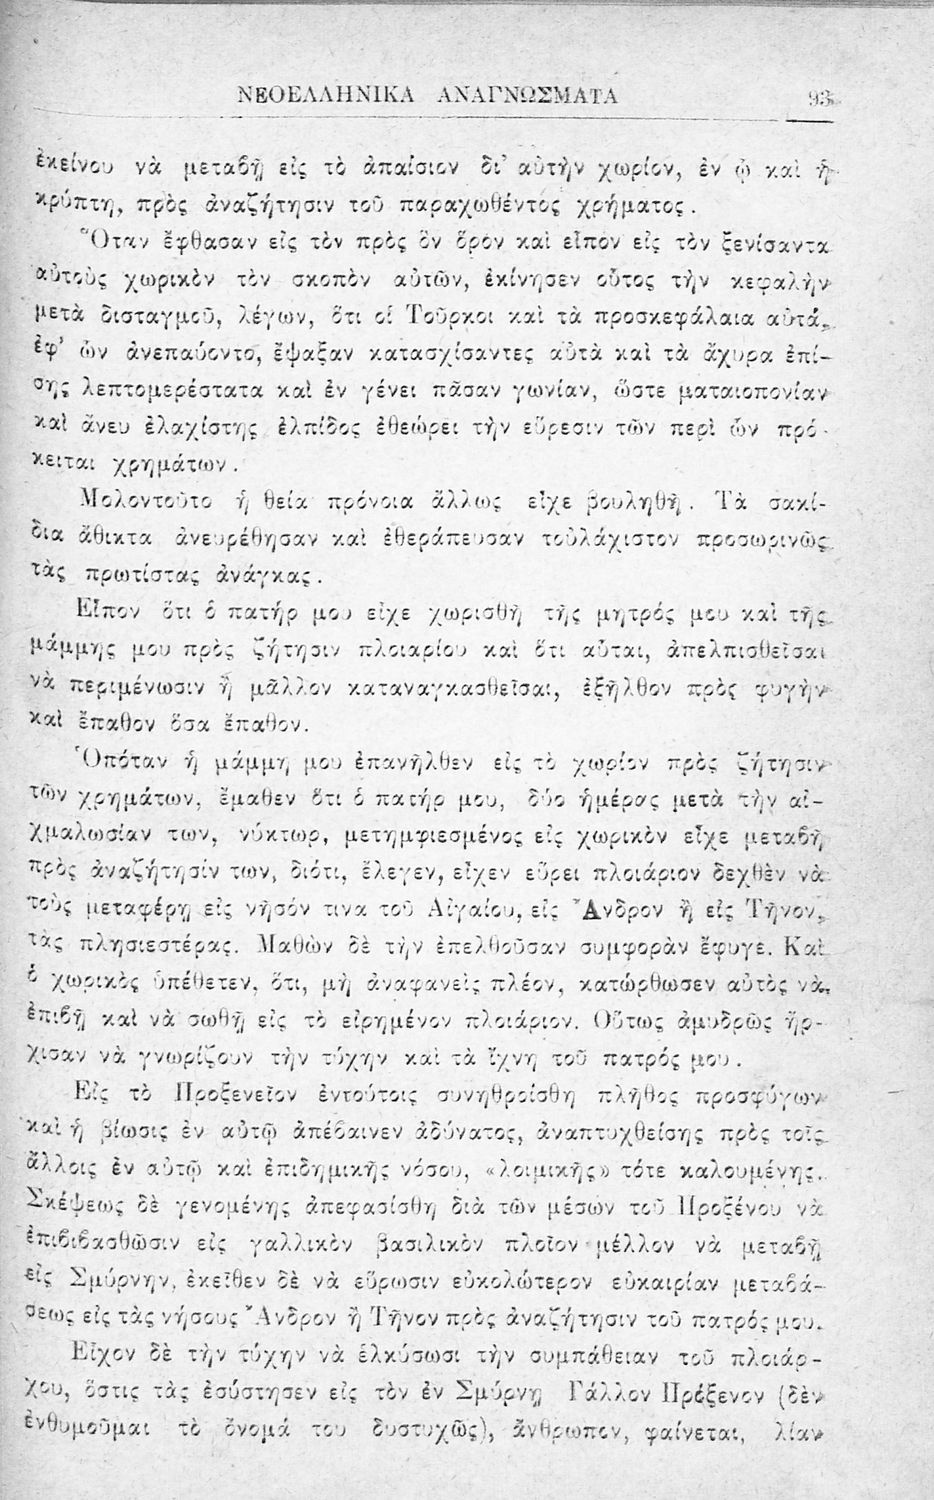 ΝΕΟΕΛΛΗΝΙΚΑ ΑΝΑΓΝΩΣΜΑΤΑ 93
ἐκείνου νὰ μεταβῇ εἰς τὸ ἀπαίσιον δι’ αὐτὴν χωρίον, ἐν ᾧ καὶ ἡ
κρύπτη, πρὸς ἀναζήτησιν τοῦ παραχωθέντος χρήματος.
Ὅταν ἔφθασαν εἰς τὸν πρὸς ὃν ὅρον καὶ εἶπον εἰς τὸν ξενίσαντα
αὐτοὺς χωρικὸν τὸν σκοπὸν αὐτῶν, ἐκίνησεν οὗτος τὴν κεφαλὴν
μετὰ δισταγμοῦ, λέγων, ὅτι οἱ Τοῦρκοι καὶ τὰ προσκεφάλαια αὐτά,
ἐφ’ ὧν ἀνεπαύοντο, ἔψαξαν κατασχίσαντες αὐτὰ καὶ τὰ ἄχυρα ἐπί-
σης λεπτομερέστατα καὶ ἐν γένει πᾶσαν γωνίαν, ὥστε ματαιοπονίαν
καὶ ἄνευ ἐλαχίστης ἐλπίδος ἐθεώρει τὴν εὕρεσιν τῶν περὶ ὧν πρό-
κειται χρημάτων.
Μολοντοῦτο ἡ θεία πρόνοια ἄλλως εἶχε βουληθῆ. Τὰ σακί-
δια ἄθικτα ἀνευρέθησαν καὶ ἐθεράπευσαν τοὐλάχιστον προσωρινῶς
τὰς πρωτίστας ἀνάγκας.
Εἶπον ὅτι ὁ πατήρ μου εἶχε χωρισθῆ τῆς μητρός μου καὶ τῆς
μάμμης μου πρὸς ζήτησιν πλοιαρίου καὶ ὅτι αὗται, ἀπελπισθεῖσαι
νὰ περιμένωσιν ἢ μᾶλλον καταναγκασθεῖσαι, ἐξῆλθον πρὸς φυγὴν
καὶ ἔπαθον ὅσα ἔπαθον.
Ὁπόταν ἡ μάμμη μου ἐπανῆλθεν εἰς τὸ χωρίον πρὸς ζήτησιν
τῶν χρημάτων, ἔμαθεν ὅτι ὁ πατήρ μου, δύο ἡμέρας μετὰ τὴν αἰ-
χμαλωσίαν των, νύκτωρ, μετημφιεσμένος εἰς χωρικὸν εἶχε μεταβῆ
πρὸς ἀναζήτησίν των, διότι, ἔλεγεν, εἶχεν εὕρει πλοιάριον δεχθὲν νὰ
τοὺς μεταφέρῃ εἰς νῆσόν τινα τοῦ Αἰγαίου, εἰς Ἄνδρον ἢ εἰς Τῆνον,
τὰς πλησιεστέρας. Μαθὼν δὲ τὴν ἐπελθοῦσαν συμφορὰν ἔφυγε. Καὶ
ὁ χωρικὸς ὑπέθετεν, ὅτι, μὴ ἀναφανεὶς πλέον, κατώρθωσεν αὐτὸς νὰ
ἐπιβῇ καὶ νὰ σωθῇ εἰς τὸ εἰρημένον πλοιάριον. Οὕτως ἀμυδρῶς ἤρ-
χισαν νὰ γνωρίζουν τὴν τύχην καὶ τὰ ἴχνη τοῦ πατρός μου.
Εἰς τὸ Προξενεῖον ἐντούτοις συνηθροίσθη πλῆθος προσφύγων
καὶ ἡ βίωσις ἐν αὐτῷ ἀπέβαινεν ἀδύνατος, ἀναπτυχθείσης πρὸς τοῖς
ἄλλοις ἐν αὐτῷ καὶ ἐπιδημικῆς νόσου, «λοιμικῆς» τότε καλουμένης.
Σκέψεως δὲ γενομένης ἀπεφασίσθη διὰ τῶν μέσων τοῦ Προξένου νὰ
ἐπιβιβασθῶσιν εἰς γαλλικὸν βασιλικὸν πλοῖον μέλλον νὰ μεταβῇ
εἰς Σμύρνην, ἐκεῖθεν δὲ νὰ εὕρωσιν εὐκολώτερον εὐκαιρίαν μεταβά-
σεως εἰς τὰς νήσους Ἄνδρον ἢ Τῆνον πρὸς ἀναζήτησιν τοῦ πατρός μου.
Εἶχον δὲ τὴν τύχην νὰ ἑλκύσωσι τὴν συμπάθειαν τοῦ πλοιάρ-
χου, ὅστις τὰς ἐσύστησεν εἰς τὸν ἐν Σμύρνῃ Γάλλον Πρόξενον (δὲν
ἐνθυμοῦμαι τὸ ὄνομά του δυστυχῶς), ἄνθρωπον, φαίνεται, λίαν